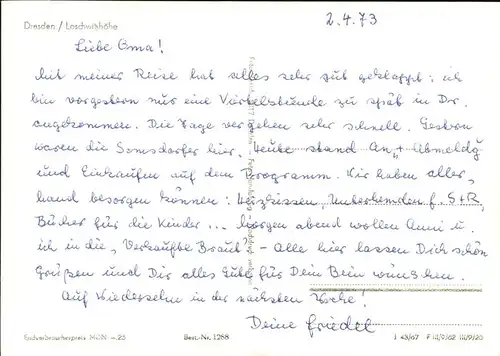 2.4.73
Dresden / Loschwitzhöhe
Liebe Oma!
Mit meiner Reise hat alles sehr gut geklappt: ich
bin vorgestern nur eine Viertelstunde zu spät in Dr.
angekommen. Die Tage vergehen sehr schnell. Gestern
waren die Somsdorfer hier. Heute stand An- u. Abmeldg
und Einkaufen auf dem Programm. Wir haben aller-
hand besorgen können: Heizkissen, Unterhemden f. S+R,
Bücher für die Kinder... Morgen abend wollen Anni u.
ich in die „Verkaufte Braut" – Alle hier lassen Dich schön
Grüßen und Dir alles Gute für Dein Bein wünschen.
Auf Wiedersehn in der nächsten Woche!
Deine Friedel
Endverbraucherpreis MDN –.25 Best.-Nr. 1288 J 43/67 F III/9/62 III/9/20